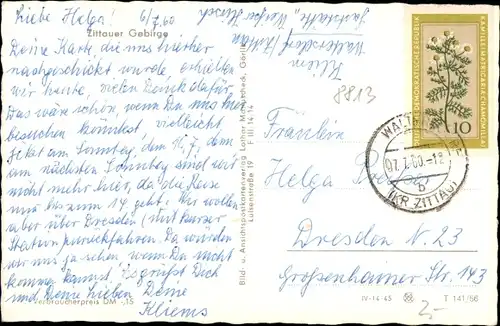 Liebe Helga! 6/7.60
Zittauer Gebirge
Deine Karte, die uns hierher
nachgeschickt wurde erhielten
wir heute, vielen Dank dafür.
Das wäre schön, wenn Du uns mal
besuchen könntest, vielleicht
jetzt am Sonntag, den 10.7., denn
am nächsten Sonntag sind wir
nicht mehr hier, da die Reise
nur bis zum 14. geht. Wir wollen
aber über Dresden (mit kurzer
Station zurückfahren. Da würden
wir uns ja sehen wenn Du nicht
kommen kannst. Es grüßt Dich
und Deine Lieben Deine
Kliems
Verbraucherpreis DM -,15
Kliem
Waltersdorf
Gaststätte
Bild- u. Ansichtspostkartenverlag Lothar Görlitz
Luisenstraße 19 F III 14 14
8813
DEUTSCHE DEMOKRATISCHE REPUBLIK
KAMILLE (MATRICARIA CHAMOMILLA)
10
07.7.60.-18
b
(KR ZITTAU)
Fräulein
Helga
Dresden N. 23
Großenhainer Str. 143
IV-14-45 T 141/56
2,-